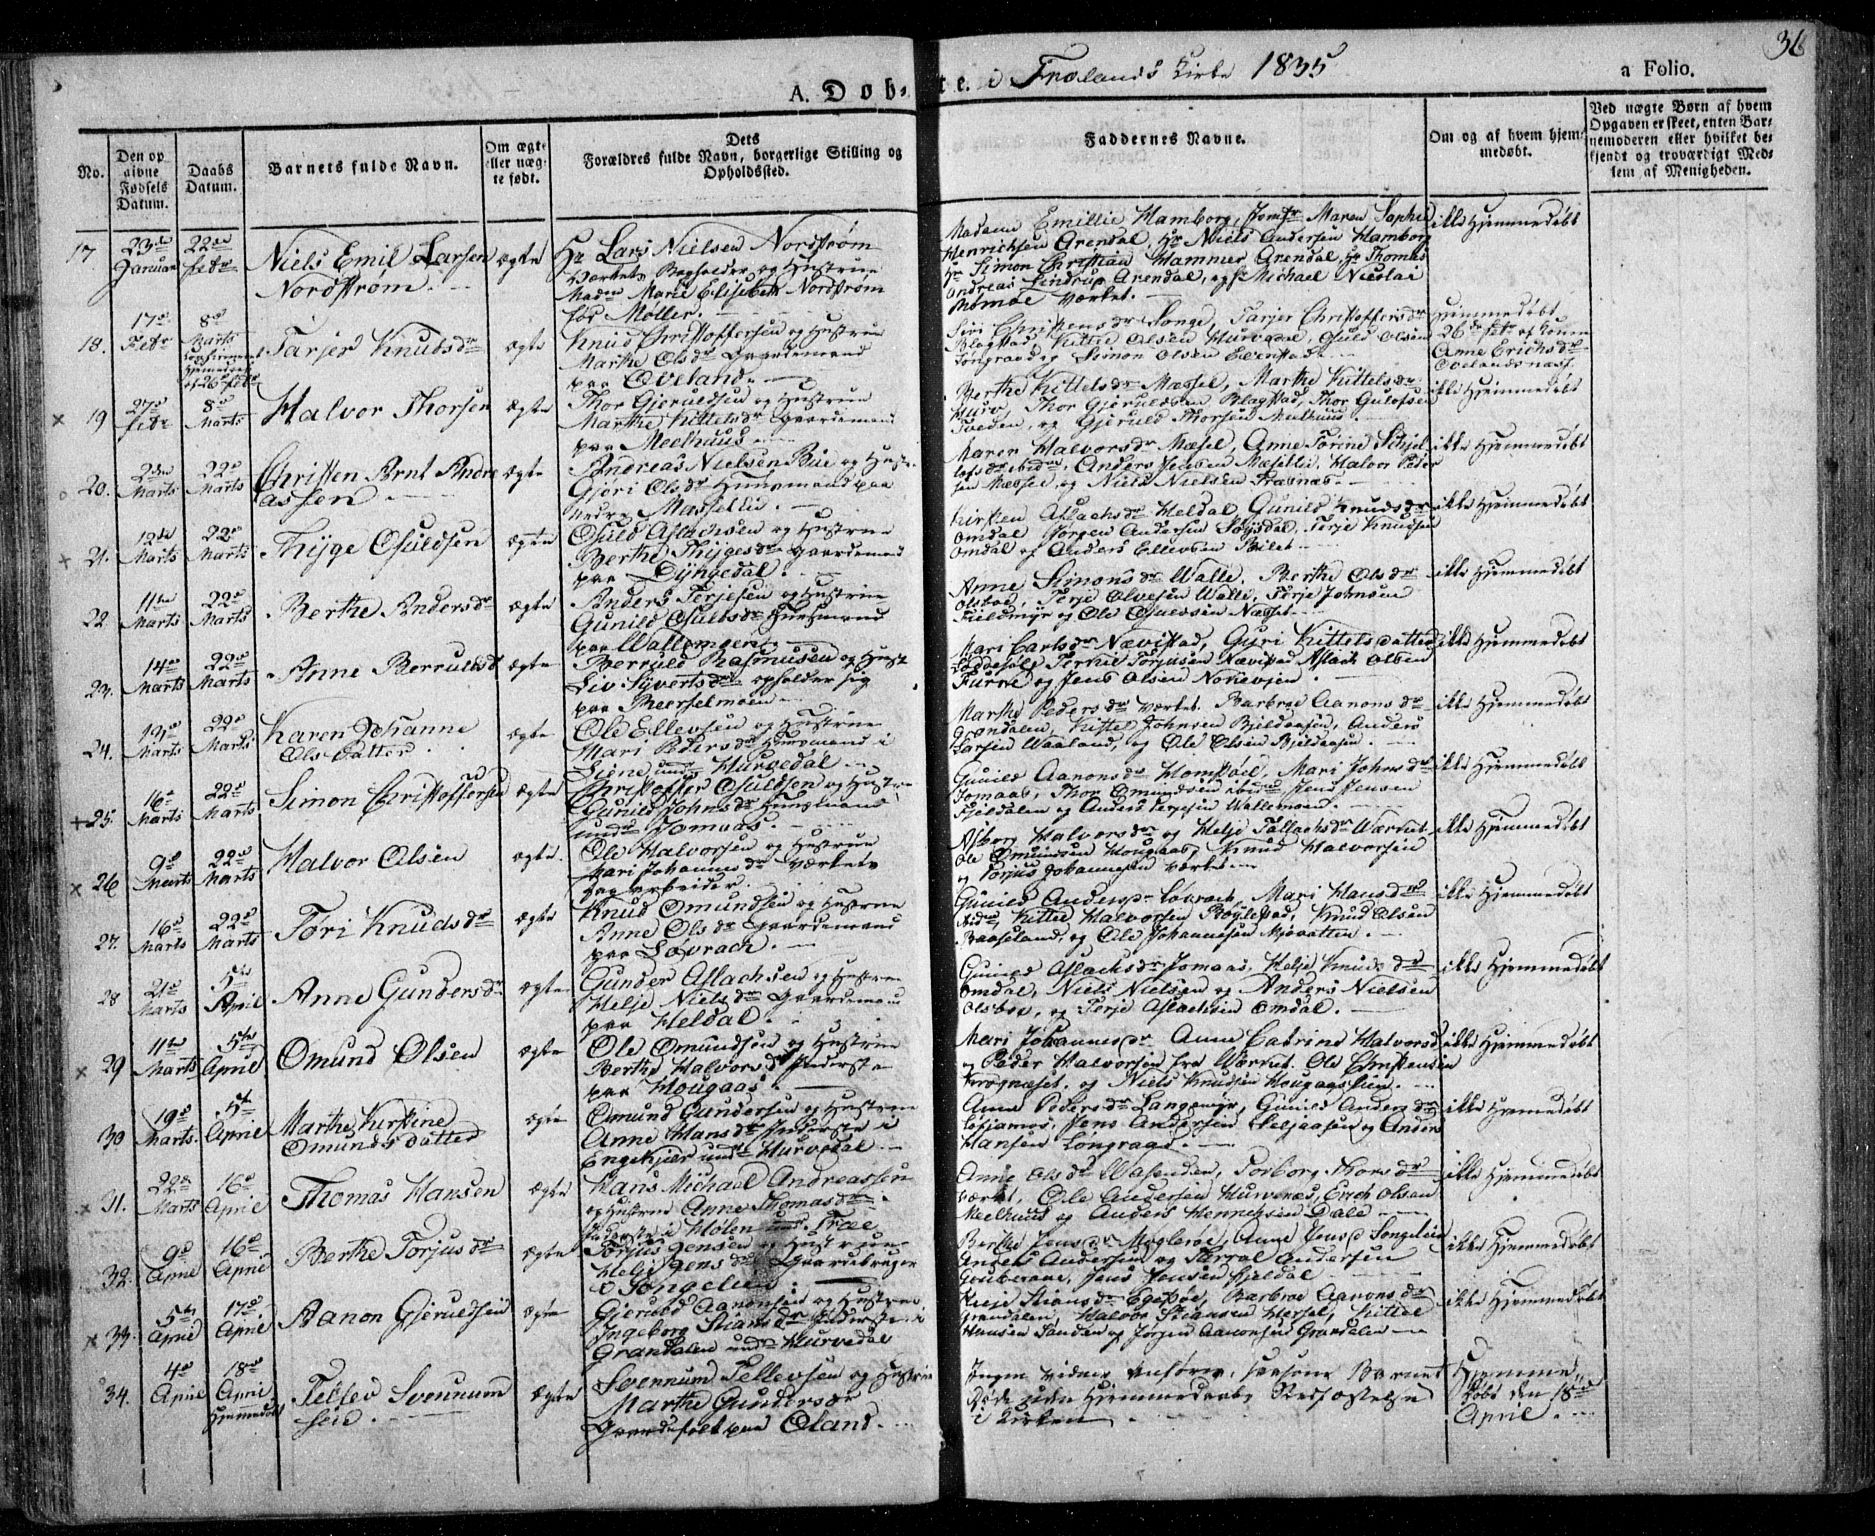 36
A. Døbte. i Frolands Kirke 1835
a Folio.
No.
Den opgivne Fødsels Datum.
Daabs Datum.
Barnets fulde Navn.
Om ægte eller uægte født.
Dets Forældres fulde Navn, borgerlige Stilling og Opholdssted.
Faddernes Navne.
Om og af hvem hjemmedøbt.
Ved uægte Børn af hvem Opgaven er skeet, enten Barnemoderen eller hvilket bekjendt og troværdigt Medlem af Menigheden.
17 23de Januar 22de Febr Niels Emil Larsen Nordstrøm ægte
Hr Lars Nielsen Nordstrøm
Værkets Bogholder og Hustrue
Madm Marie Elisebeth Nordstrøm
før Møller.
Madame Emillie Hamborg, Jomfr Maren Sophie
Henrichsen Arendal, Hr Niels Andersen Hamborg
Hr Simon Christian Hammer Arendal, Hr Thomas
Andreas Lindrup Arendal, og Hr Michael Nicolai
Værket.
ikke Hjemmedøbt
18. 17de Febr 8de Marts Tarjer Knudsdr ægte
Knud Christoffersen og Hustrue
Marthe Olsdr Gaardemand
paa Oveland.
Siri Christensdr Songe, Tarjer Christoffersdr
Blagstad, Kittel Olsen Hurvedal, Guld Olsen
Longraae og Simon Olsen
Hjemmedøbt
26de Febr af Konen
Anne Erichsdr
Ovelandsnæss
19 27de Febr 8de Marts Halvor Thorsen ægte
Thor Gjeruldsen og Hustrue
Marthe Kittelsdr Gaardemand
paa Meelhuus.
Berthe Kittelsdr Mæssel, Marthe Kittelsdr
Hurv, Thor Gjeruldsen Blagstad, Thor Gulofsen
Tveden, og Gjeruld Thorsen Meelhuus.
ikke Hjemmedøbt
20. 2den Marts 22de Marts Christen Arnt Andreassen ægte
Andreas Nielsen Bie og Hustr
Gjøri Olsdr Huusmand paa
Nedre Mæsellie.
Maren Halvorsdr Mæsel, Anne Torine
Anders Jensen Mæsellie, Halvor Peder
sen Mæssel og Niels Nielsen
ikke Hjemmedøbt
21. 12te Marts 22de Marts Thyge Osuldsen ægte
Osuld Aslachsen og Hustrue
Berthe Thygesdr Gaardemand
paa Lyngedal.
Kirsten Aslachsdr Heldal, Gunild Knudsdr
Omdal Jørgen Andersen Terje Knudsen
Omdal og Anders Ellevsen
ikke Hjemmedøbt
22. 11te Marts 22de Marts Berthe Andersdr ægte
Anders Terjesen og Hustrue
Gunild Osuldsdr Huusmand
paa Wallemoen.
Anne Simonsdr Walle, Berthe Olsdr
Olsboe, Terje Olvesen Walle, Terje Johnsen
Fieldmyr og Ole Osuldsen Næsset.
ikke Hjemmedøbt
23. 14de Marts 22de Marts Anne Berruldsdr ægte
Berruld Rasmusen og Hustr
Liv Syvertsdr opholder sig
paa Messelmoen.
Mari Carlsdr Nævestad, Guri Kittels datter
Terkel Torjusen Nævestad Aslach Olsen
Furre og Jens Olsen
ikke Hjemmedøbt
24. 19de Marts 22de Marts Karen Johanne Ols Datter ægte
Ole Ellevsen og Hustrue
Mari Pedersdr Huusmand i
Liene under Hurvedal
Marthe Pedersdr Værket. Barbroe Aanonsdr
Grøndalen, Kittel Johnsen Bieldaasen, Anders
Larsen Waaland, og Ole Olsen Bjeldaasen.
ikke Hjemmedøbt
25. 16de Marts 22de Marts Simon Christoffersen ægte
Christoffer Osuldsen og Hustrue
Gunild Johnsdr Huusmand
under Jomaas.
Gunild Aanonsdr Homstøel, Mari Johnsdr
Jomaas, Thor Omundsen ibidm Jens Jensen
Fieldalen og Anders Terjesen Wallemoen.
ikke Hjemmedøbt
26 9de Marts 22de Marts Halvor Olsen ægte.
Ole Halvorsen og Hustrue
Mari Johannesdr Værkets
Dagarbeider.
Asborg Halvorsdr og Helje Tallachsdr Værket
Ole Omundsen Hougaas, Knud Halvorsen
og Torjus Johannesen Værket.
ikke Hjemmedøbt
27. 16de Marts 22de Marts Tori Knudsdr ægte
Knud Omundsen og Hustrue
Anne Olsdr Gaardemand
paa Løvrach.
Gunild Andersdr Løvrach, Mari Hansdr
ibidm, Kittel Halvorsen Bøylestad, Knud Olsen
Baaseland, og Ole Johannesen Mjovatten.
ikke Hjemmedøbt
28 21de Marts 5te April Anne Gundersdr ægte
Gunder Aslachsen og Hustrue
Helje Nielsdr Gaardemand
paa Heldal.
Gunild Aslachsdr Jomaas, Helje Knudsdr
Omdal, Niels Nielsen og Anders Nielsen
Olsboe, og Terje Aslachsen Omdal.
ikke Hjemmedøbt
29 11te Marts 5te April Omund Olsen ægte
Ole Omundsen og Hustrue
Berthe Halvorsdr Inderste
paa Hougaas.
Mari Johannesdr Anne Catrine Halvorsd
og Peder Halvorsen fra Værket. Ole Christensen
Krognæset, og Niels Knudsen Hougaasheien.
ikke Hjemmedøbt
30 19de Marts. 5te April Marthe Kirstine Omundsdatter ægte
Omund Gundersen og Hustrue
Anne Hansdr Inderste i
Engekjær under Hurvedal
Anne Pedersdr Langemyr, Gunild Andersdr
Jens Andersen og Anders
Hansen Longraae.
ikke Hjemmedøbt
31. 22de Marts 16de April Thomas Hansen ægte
Hans Michael Andreassen
og Hustrue Anne Thomasdr
Inderste i Molen und. Frae
Anne Olsdr Wasenden, Torborg Thorsdr
Værket, Ole Andersen Hurvenes, Erich Olsen
Meelhuus og Anders Henrichsen Dale.
ikke Hjemmedøbt
32. 9de April 16de April Berthe Torjusdr ægte
Torjus Jensen og Hustrue
Helje Jensdr Gaardebruger
i Songelien.
Berthe Jensdr Anne Jensd Songelien
Anders Andersen og Andersen
Jens Jensen Fjeldal
ikke Hjemmedøbt
33. 5te April 17de April Aanon Gjeruldsen ægte
Gjeruld Aanonsen og Hustrue
Ingeborg Stiansdr Inderste i
Grandalen und. Hurvedal
Stiansdr Barbroe Aanonsdr
Grandalen, Halvor Stiansen Hersel, Kittel
Hansen Sanden og Jørgen Aanonsen Grandalen
ikke Hjemmedøbt
34. 4de April 18de April Hjemmedøbt Tellev Svennumsen ægte
Svennum Tellevsen og Hustrue
Marthe Gundersdr
Gaardefolk paa Øland.
Ingen Vidner anføres, saasom Barnet
Døde uden Hjemmedaabs Stadfæstelse
i Kirken
Hjemme
døbt den 18de
April.